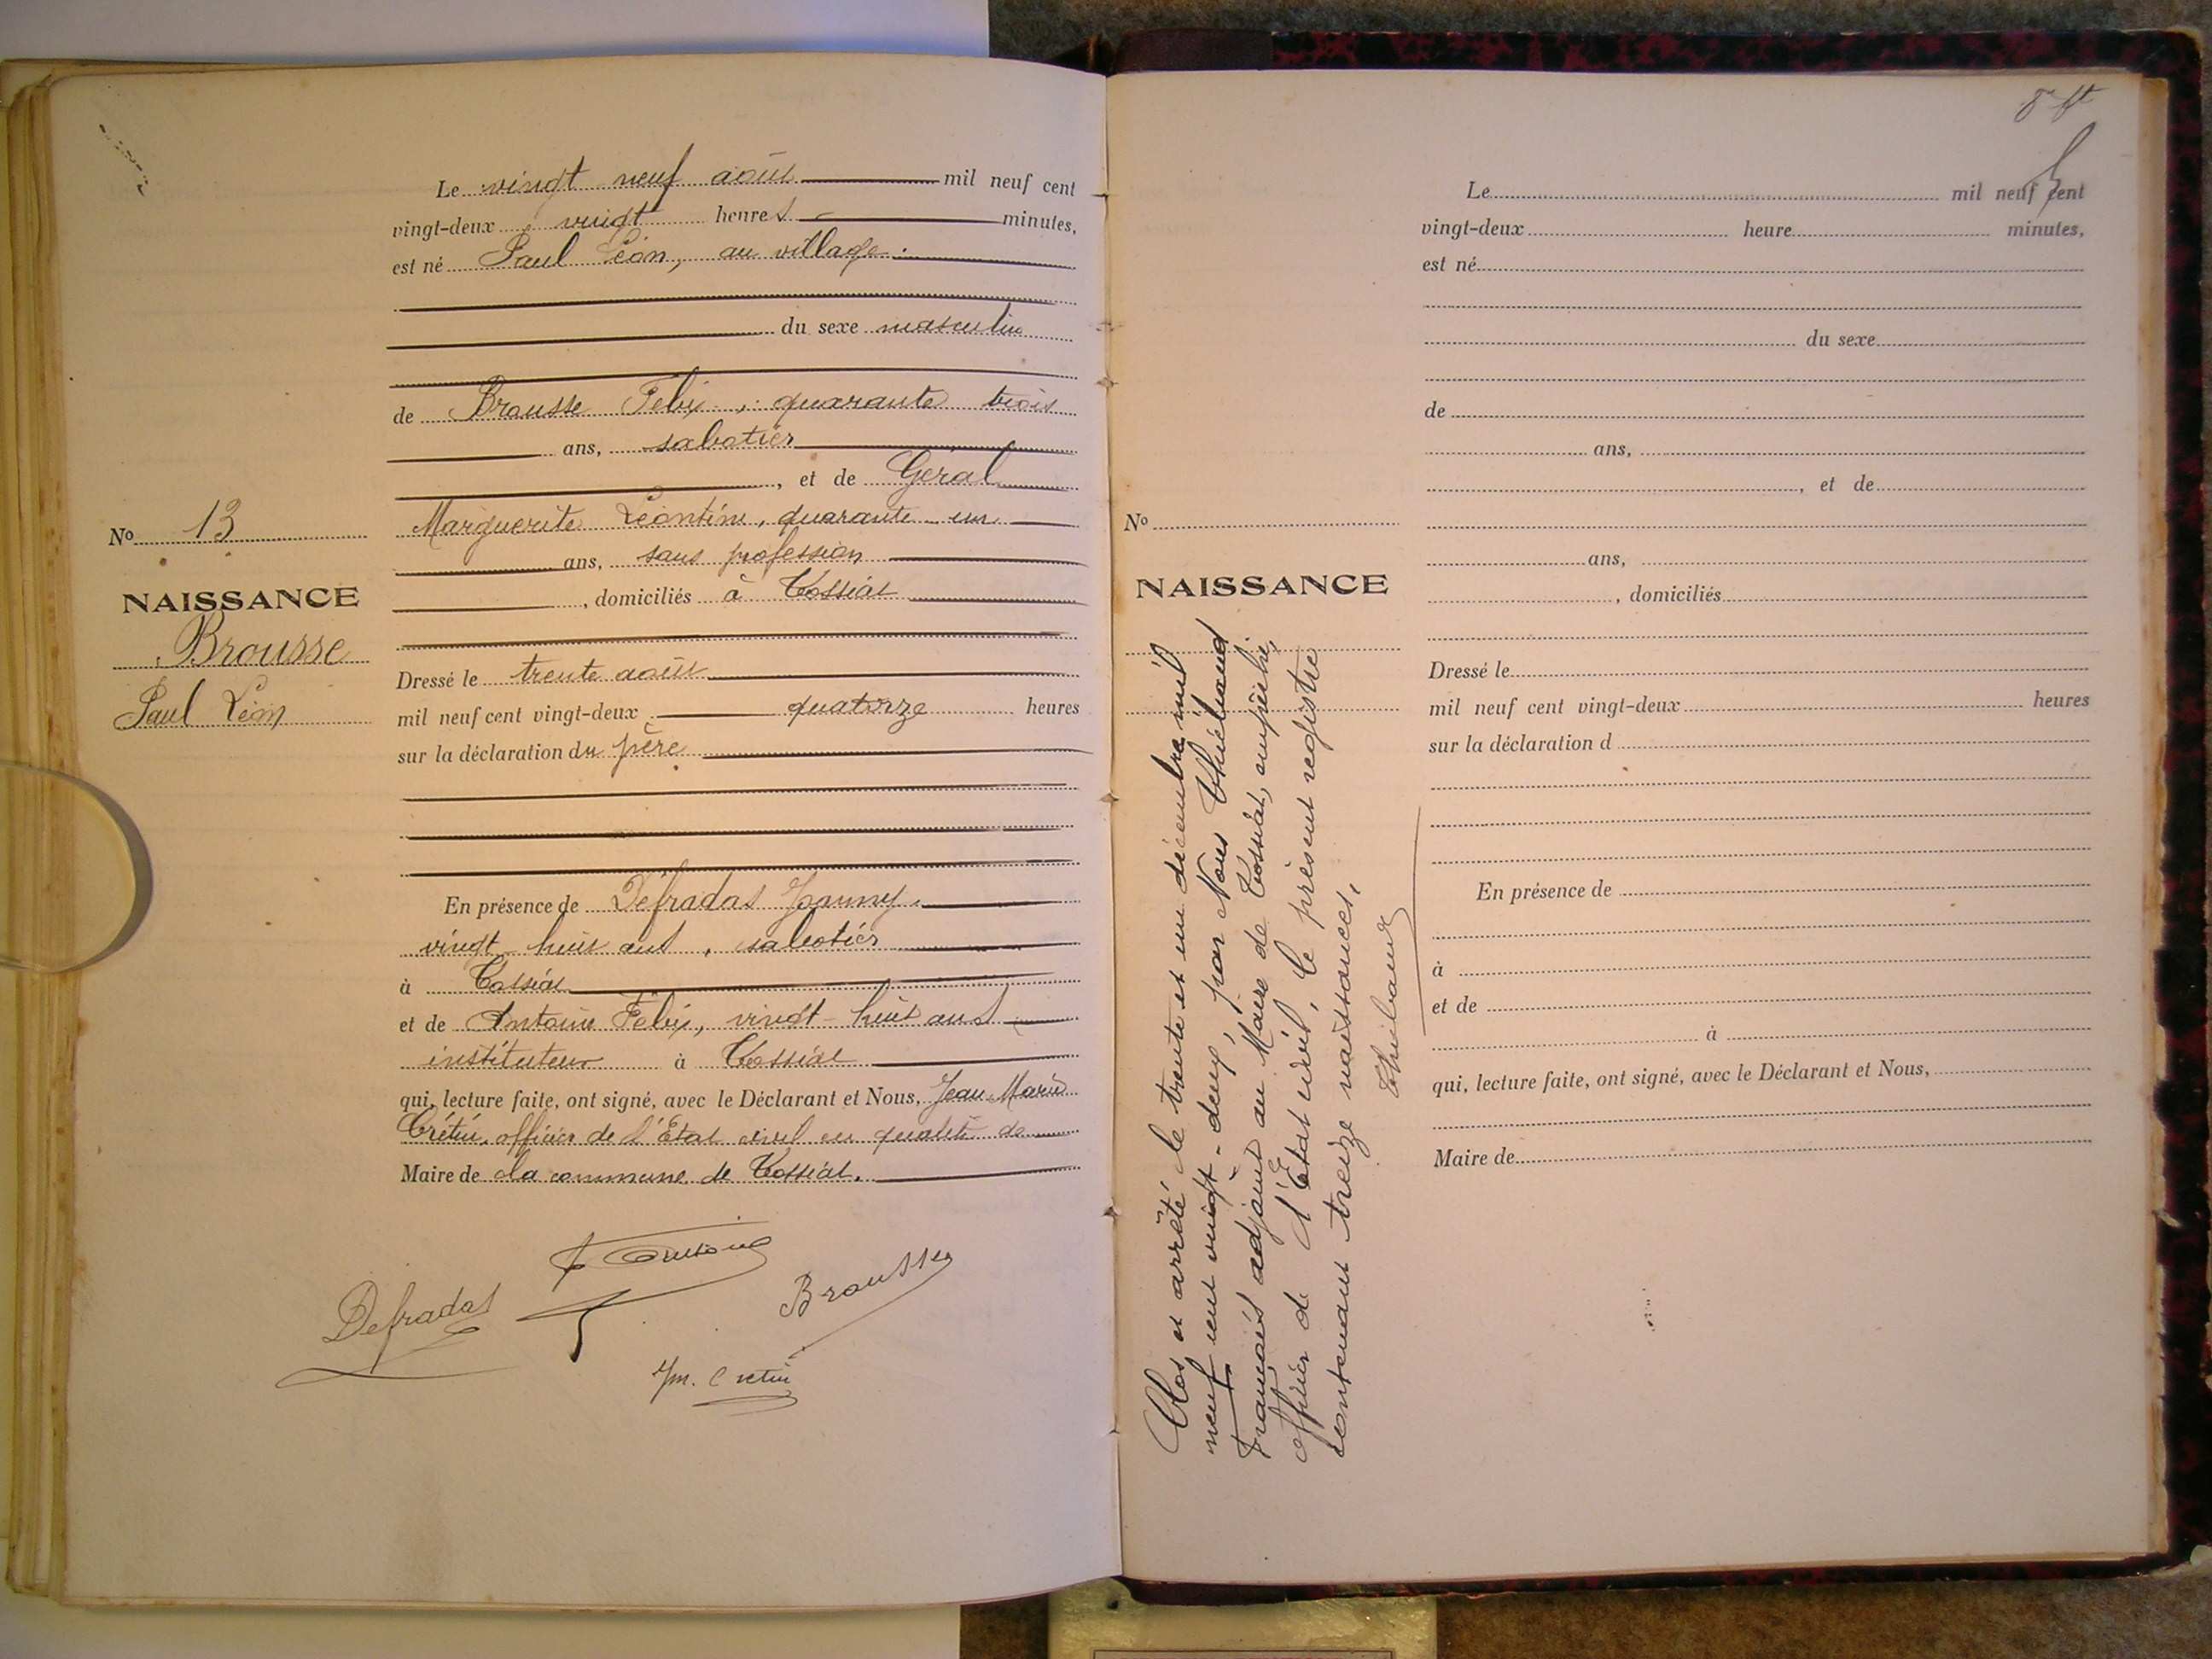 Le vingt neuf août mil neuf cent
vingt-deux vingt heures minutes,
est né Paul Léon, au village
du sexe masculin
de Brousse Félix, quarante trois
ans, sabotier
, et de Géral
Marguerite Léontine, quarante un
ans, sans profession
, domiciliés à Tossiat
Dressé le trente août
mil neuf cent vingt-deux quatorze heures
sur la déclaration du père
En présence de Défradas Joanny
vingt huit ans, sabotier
à Tossiat
et de Antoine Félix, vingt-huit ans
instituteur à Tossiat
qui, lecture faite, ont signé, avec le Déclarant et Nous, Jean-Marie
Crétin, officier de l'État civil en qualité de
Maire de la commune de Tossiat.
No 13
NAISSANCE
Brousse
Paul Léon
Defradas
F Antoine
Brousse
Jm. Cretin
Le mil neuf cent
vingt-deux heure minutes,
est né
du sexe
de
ans,
, et de
ans,
, domiciliés
Dressé le
mil neuf cent vingt-deux heures
sur la déclaration d
En présence de
à
et de
à
qui, lecture faite, ont signé, avec le Déclarant et Nous,
Maire de
No
NAISSANCE
Clos et arrêté le trente et un décembre mil
neuf cent vingt-deux, par Nous Thiébaud
François adjoint au Maire de Tossiat, empêché,
officier de l'État civil, le présent registre
contenant treize naissances.
Thiébaud